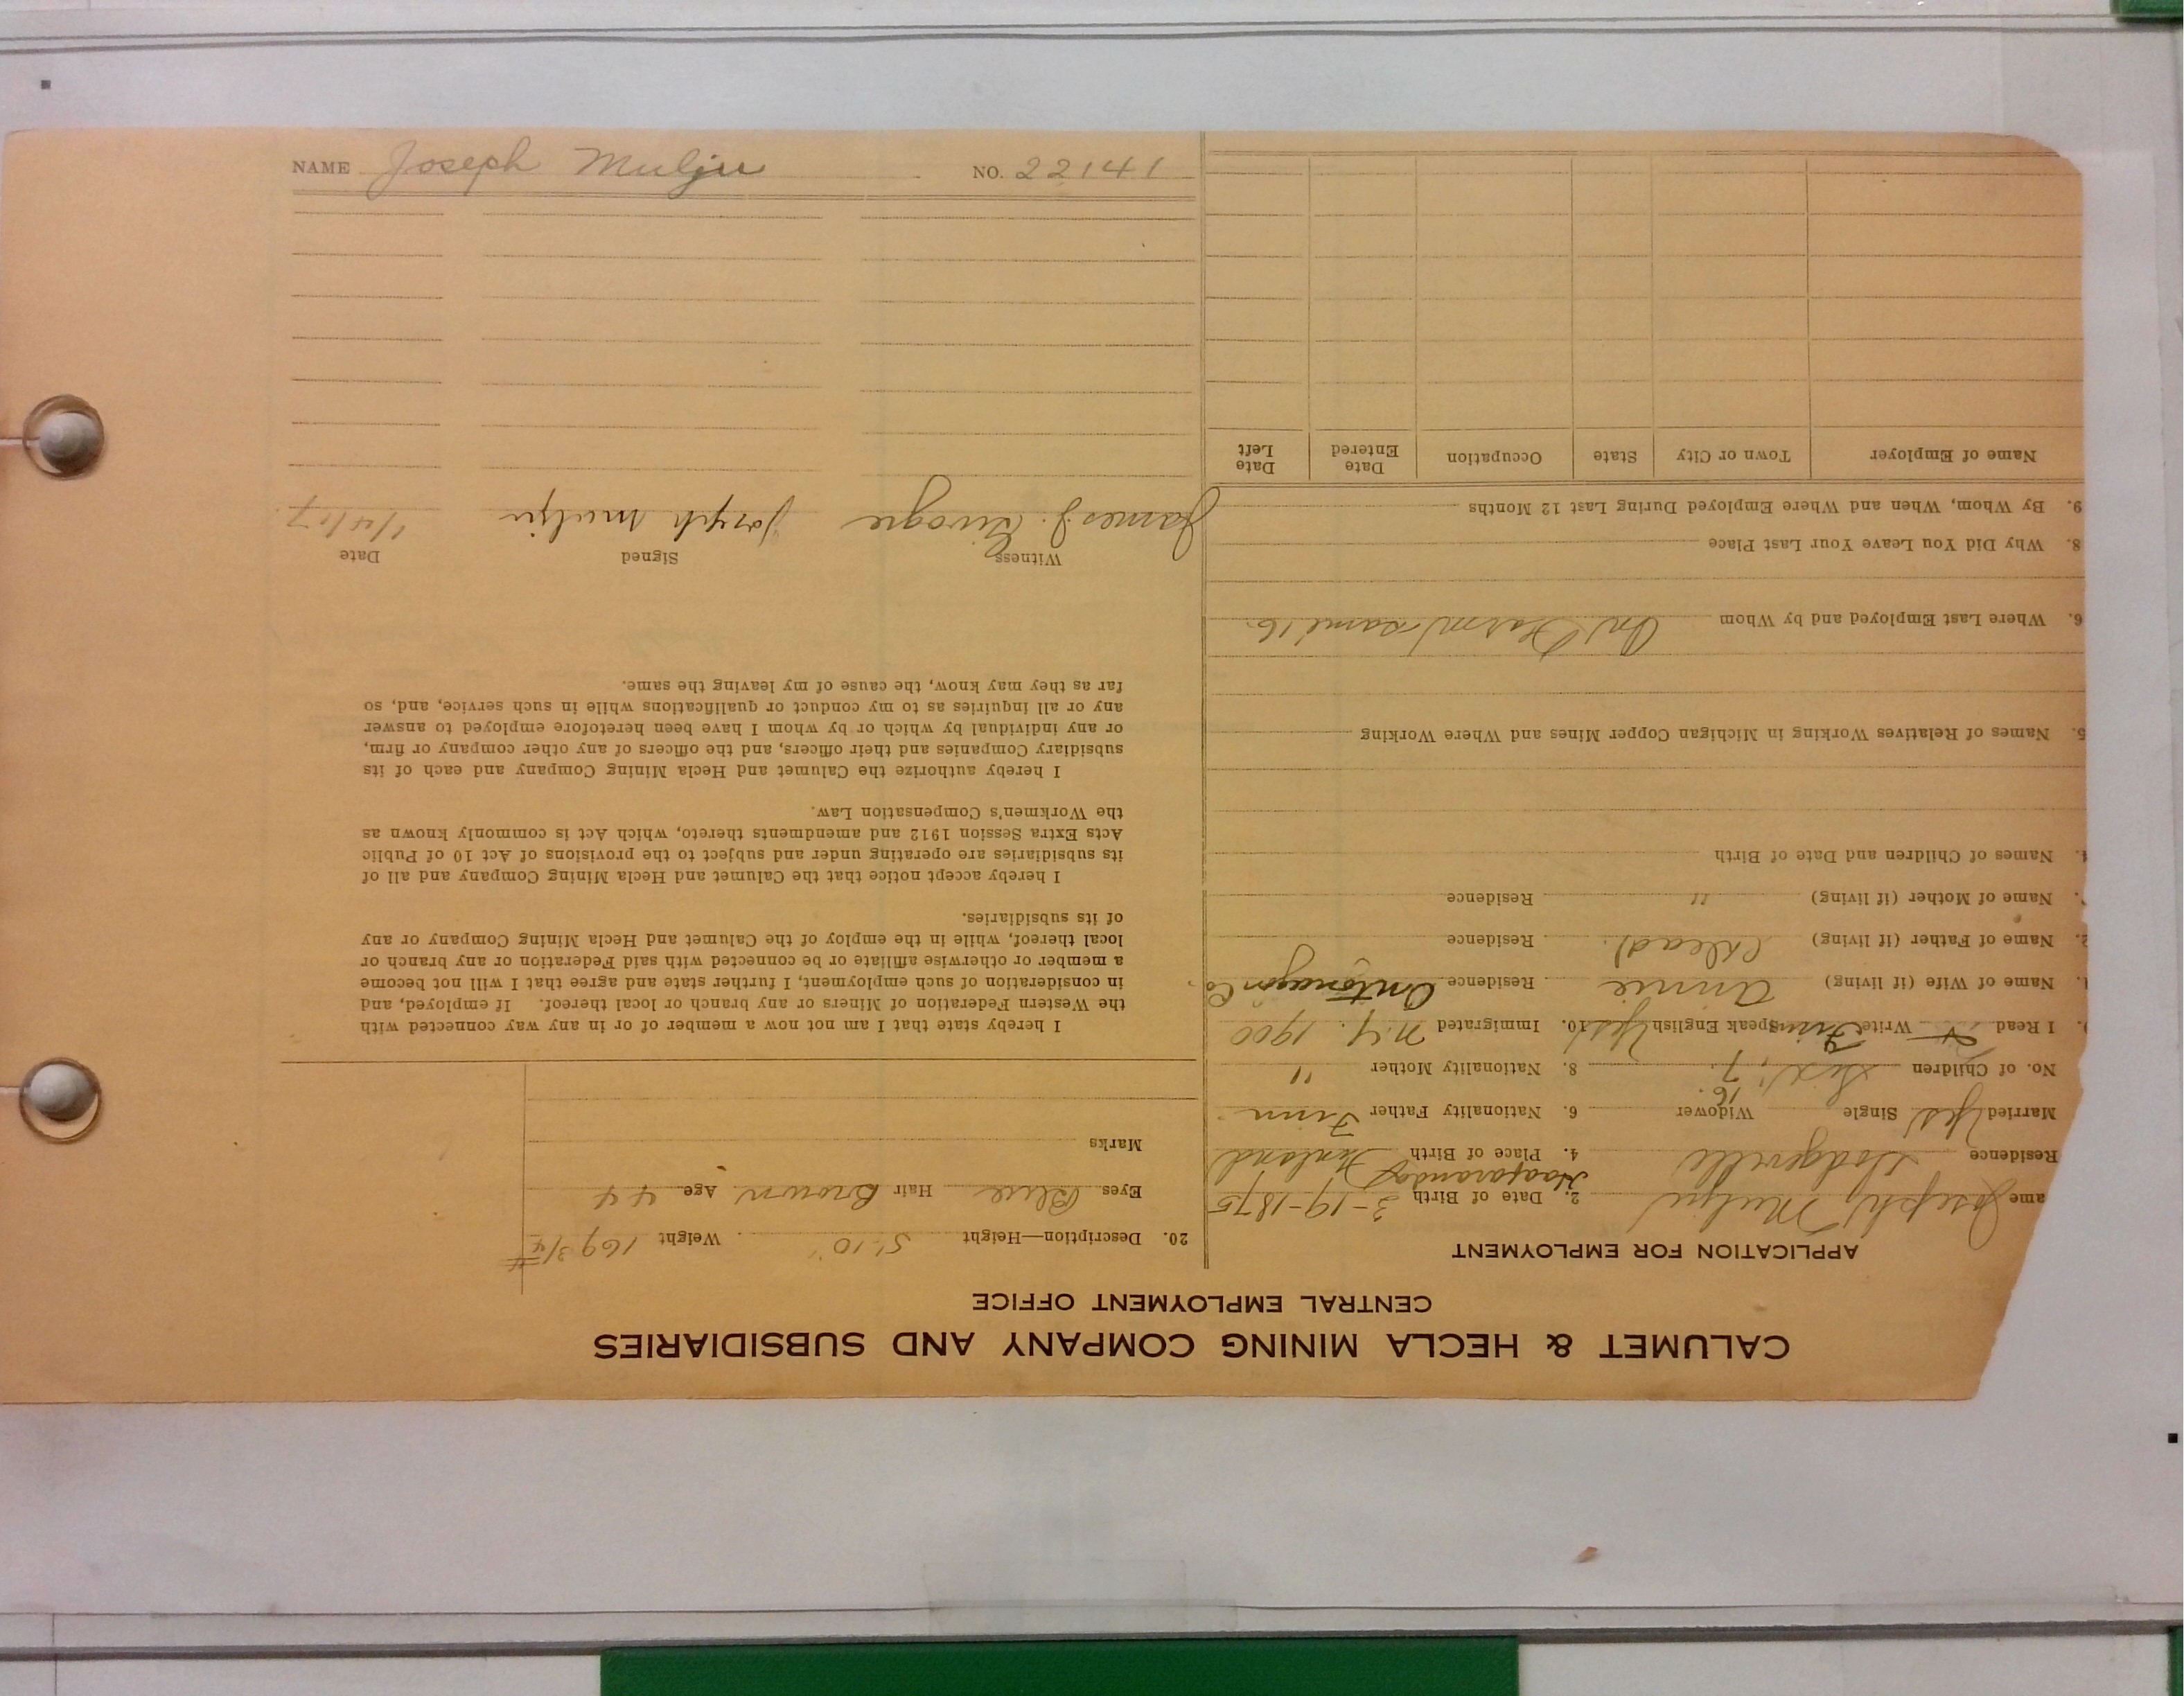 NAME Joseph Mulju NO. 22141
CALUMET & HECLA MINING COMPANY AND SUBSIDIARIES
CENTRAL EMPLOYMENT OFFICE
APPLICATION FOR EMPLOYMENT
ame Joseph Mulju 2. Date of Birth 3-19-1875
Residence 4. Place of Birth Haaparanda Finland
Married Yes Single Widower 6. Nationality Father Finn
16.
No. of Children Six 7. 8. Nationality Mother "
I Read Write Finn Speak English Yes 10. Immigrated N.Y. 1900
Name of Wife (if living) Annie Residence Ontonagon Co
2. Name of Father (if living) (Dead) Residence
Name of Mother (if living) " Residence
4. Names of Children and Date of Birth
5. Names of Relatives Working in Michigan Copper Mines and Where Working
6. Where Last Employed and by Whom On Farm same 16.
8. Why Did You Leave Your Last Place
9. By Whom, When and Where Employed During Last 12 Months
Name of Employer Town or City State Occupation Date Entered Date Left
20. Description—Height 5'.10" Weight 169 3/4 #
Eyes Blue Hair Brown Age 44
Marks
I hereby state that I am not now a member of or in any way connected with
the Western Federation of Miners or any branch or local thereof. If employed, and
in consideration of such employment, I further state and agree that I will not become
a member or otherwise affiliate or be connected with said Federation or any branch or
local thereof, while in the employ of the Calumet and Hecla Mining Company or any
of its subsidiaries.
I hereby accept notice that the Calumet and Hecla Mining Company and all of
its subsidiaries are operating under and subject to the provisions of Act 10 of Public
Acts Extra Session 1912 and amendments thereto, which Act is commonly known as
the Workmen's Compensation Law.
I hereby authorize the Calumet and Hecla Mining Company and each of its
subsidiary Companies and their officers, and the officers of any other company or firm,
or any individual by which or by whom I have been heretofore employed to answer
any or all inquiries as to my conduct or qualifications while in such service, and, so
far as they may know, the cause of my leaving the same.
Witness Signed Date
James J. Joseph Mulju